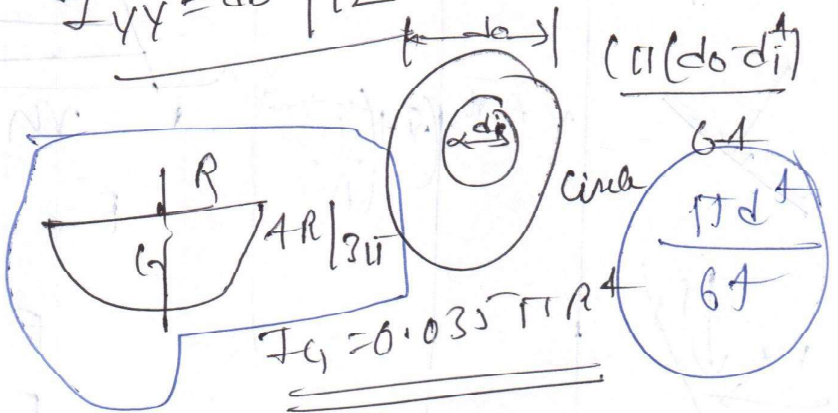 I yy =
do
(π(do-di⁴)
64
di
circle
πd⁴
64
R
4R|3π
G
IG =0.035 π R⁴